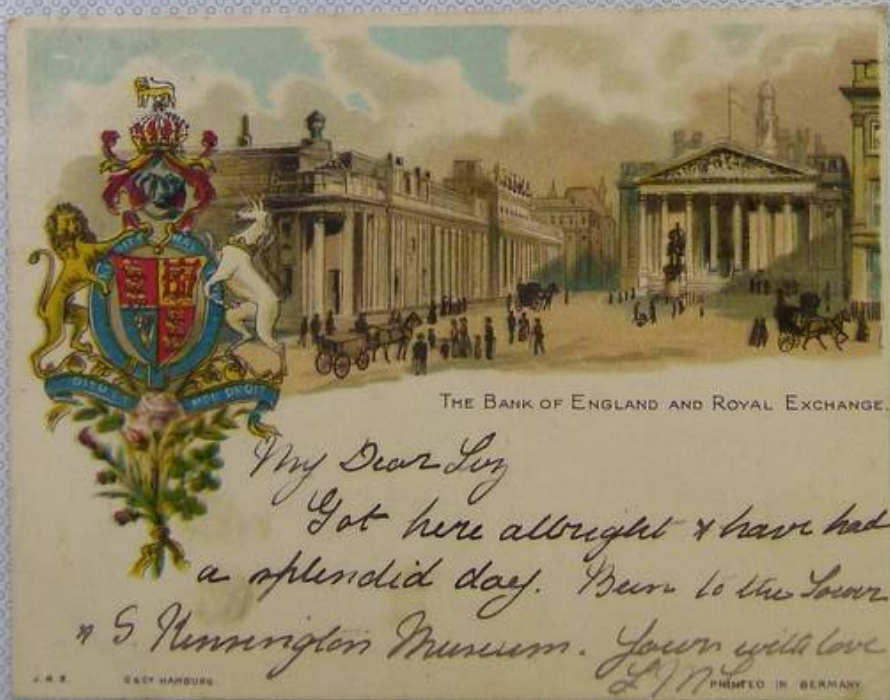 DIEU ET MON DROIT
THE BANK OF ENGLAND AND ROYAL EXCHANGE.
My Dear Luy
Got here allright & have had
a splendid day. Been to the Tower
& S. Kensington Museum. Yours with love
J. & B. G & Co HAMBURG PRINTED IN GERMANY